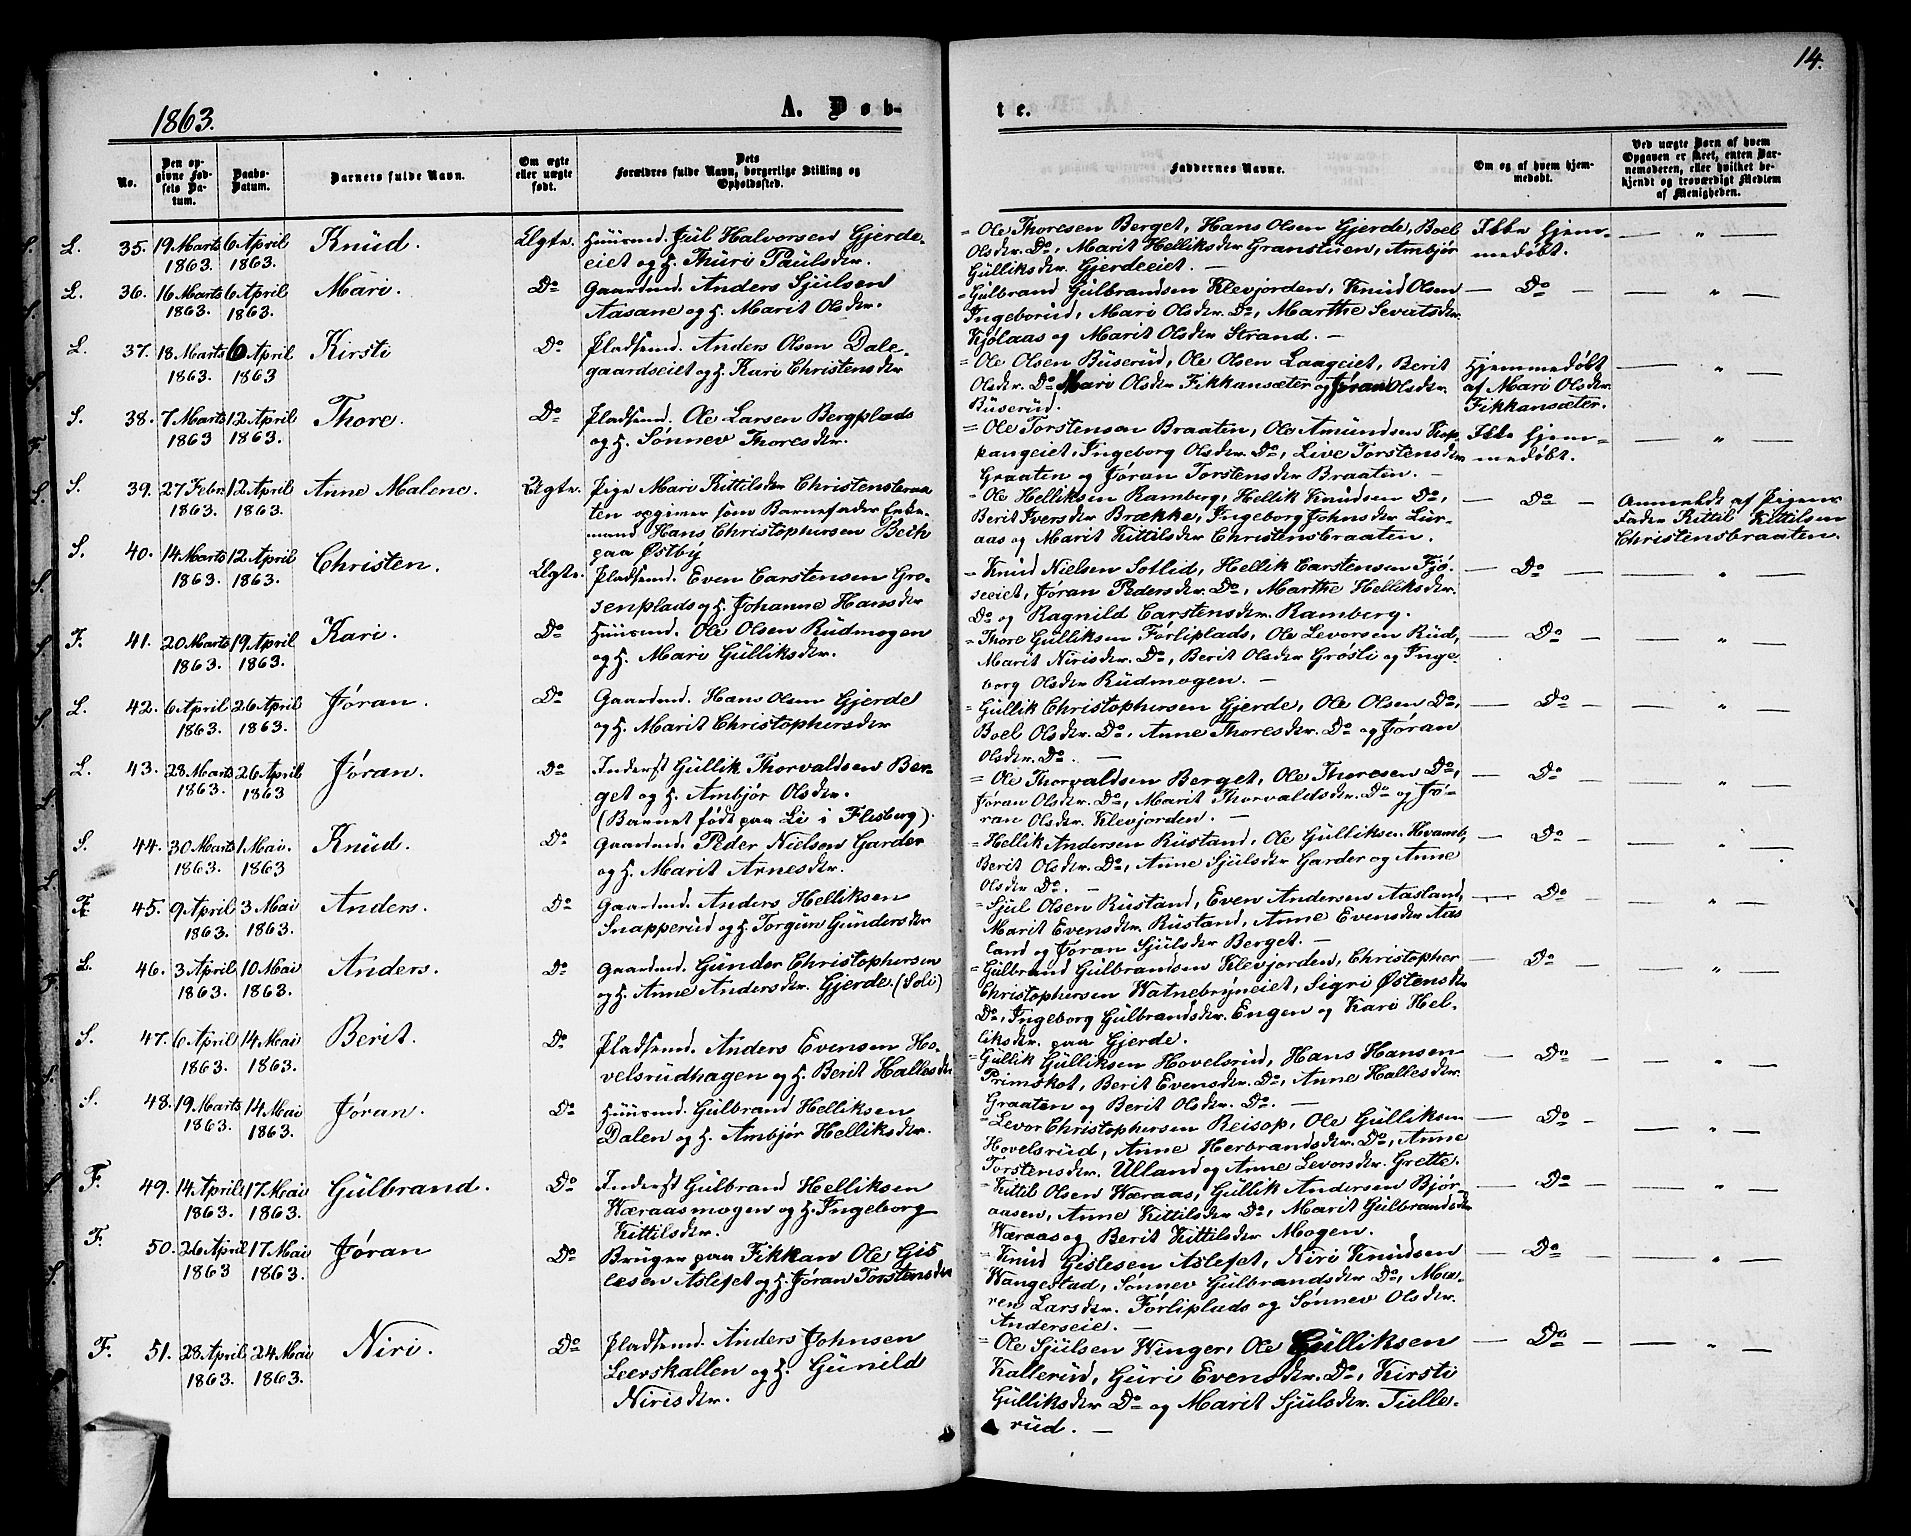 14.
1863.
A. Døb-
te.
No.
Den opgivne Fødsels Datum.
Daabs-Datum.
Barnets fulde Navn.
Om ægte eller uægte født.
Dets Forældres fulde Navn, borgerlige Stilling og Opholdssted.
Faddernes Navne.
Om og af hvem hjemmedøbt.
Ved uægte Børn af hvem Opgaven er skeet, enten Barnemoderen, eller hvilket bekjendt og troværdigt Medlem af Menigheden.
L. 35. 19 Marts 1863. 6 April 1863. Knud. Ægte.
Huusmd. Jul Halvorsen Gjerde-
eiet og H. Thuri Paulsdtr.
= Ole Thoresen Berget, Hans Olsen Gjerde, Boel
Olsdtr. Do, Marit Helliksdtr Granstuen, Ambjør
Gulliksdtr. Gjerdeeiet. —
Ikke hjem-
medøbt.
— " —
L. 36. 16 Marts 1863. 6 April 1863. Mari. Do
Gaardmd. Anders Sjulsen
Aasane og H. Marit Olsdtr.
= Gulbrand Gulbrandsen Klevjorden, Knud Olsen
Ingeborud, Mari Olsdtr. Do, Marthe Sevatsdtr.
Kjølaas og Marit Olsdtr Strand. —
— Do —
— " —
L. 37. 18 Marts 1863. 6 April 1863 Kirsti Do
Pladsemd. Anders Olsen Dale-
gaardseiet og H. Kari Christensdtr
= Ole Olsen Buserud, Ole Olsen Laageiet, Berit
Olsdtr. Do Mari Olsdtr Fikkansæter og Jøran Olsdtr
Buserud.
Hjemmedøbt
af Mari Olsdtr.
Fikkansæter.
— " —
S. 38. 7 Marts 1863 12 April 1863. Thore. Do
Pladsemd. Ole Larsen Bergplads
og H. Sønnev Thoresdtr.
= Ole Torstensen Braaten, Ole Amundsen Kop-
pangeiet, Ingeborg Olsdtr. Do, Live Torstensdtr
Graaten og Jøran Torstensdtr Braaten. —
Ikke hjem-
medøbt.
— " —
S. 39. 27 Febr. 1863. 12 April 1863. Anne Malene. Uægte.
Pige Mari Kittilsdtr Christensbraa
ten opgiver som Barnefader Enke-
mand Hans Christophersen Beth
paa Østby
= Ole Helliksen Ramberg, Hellik Knudsen Do,
Berit Iversdtr Brække, Ingeborg Johnsdtr Lur-
aas og Marit Kittilsdtr Christensbraaten.
— Do —
Anmeldt af Pigens
Fader Kittil Kittilsen
Christensbraaten.
S. 40. 14 Marts 1863. 12 April 1863. Christen. Ægte.
Pladsemd. Even Carstensen Gro-
senplads og H. Johanne Hansdtr
= Knud Nielsen Sotlid, Hellik Carstensen Fjø-
seeiet, Jøran Pedersdtr. Do, Marthe Helliksdtr.
Do og Ragnild Carstensdtr. Ramberg.
— Do —
— " —
F. 41. 20 Marts 1863. 19 April 1863. Kari. Do
Huusmd. Ole Olsen Rudmogen
og H. Mari Gulliksdtr.
= Thore Gulliksen Førliplads, Ole Levorsen Rud,
Marit Nirisdtr. Do, Berit Olsdtr Grøsli og Inge-
borg Olsdtr Rudmogen. —
— Do —
— " —
L. 42. 6 April 1863. 26 April 1863. Jøran. Do
Gaardmd. Hans Olsen Gjerde
og H. Marit Christophersdtr
= Gullik Christophersen Gjerde, Ole Olsen Do,
Boel Olsdtr. Do, Anne Thoresdtr. Do og Jøran
Olsdtr. Do. —
— Do —
— " —
L. 43. 28 Marts 1863. 26 April 1863 Jøran. Do
Inderst Gullik Thorvaldsen Ber-
get og H. Ambjør Olsdtr.
(Barnet født paa Li i Flesberg).
= Ole Thorvaldsen Berget, Ole Thoresen Do,
Jøran Olsdtr. Do, Marit Thorvaldsdtr. Do og Jø-
ran Olsdtr. Klevjorden. —
— Do —
— " —
S. 44. 30 Marts 1863. 1 Mai. 1863 Knud. Do
Gaardmd. Peder Nielsen Garder
og H. Marit Arnesdtr.
= Hellik Andersen Rustand, Ole Gulliksen Hvamb,
Berit Olsdtr. Do, Anne Sjulsdtr Garder og Anne
Olsdtr Do. —
— Do —
— " —
F. 45. 9 April 1863. 3 Mai 1863. Anders. Do
Gaardmd. Anders Helliksen
Snapperud og H. Torgun Gundersdtr
= Sjul Olsen Rustand, Even Andersen Aasland,
Marit Evensdtr. Rustand, Anne Evensdtr Aas
land og Jøran Sjulsdtr Berget. —
— Do —
— " —
L. 46. 3 April 1863. 10 Mai 1863. Anders. Do
Gaardmd. Gunder Christophersen
og H. Anne Andersdtr. Gjerde. (Soli)
= Gulbrand Gulbrandsen Klevjorden, Christopher
Christophersen Watnebryneiet, Sigri Østensdtr
Do, Ingeborg Gulbrandsdtr. Engen og Kari Hel-
liksdtr. paa Gjerde.
— Do —
— " —
S. 47. 6 April 1863. 14 Mai 1863. Berit. Do
Pladsemd. Anders Evensen Ho-
velsrudhagen og H. Berit Hallesdtr
= Gullik Gulliksen Hovelsrud, Hans Hansen
Primskot, Berit Evensdtr. Do, Anne Hallesdtr.
Graaten og Berit Olsdtr. Do. —
— Do —
— " —
S. 48. 19 Marts 1863. 14 Mai 1863. Jøran. Do
Huusmd. Gulbrand Helliksen
Dalen og H. Ambjør Helliksdtr.
= Levor Christophersen Reisop, Ole Gulliksen
Hovelsrud, Anne Herbrandsdtr. Do, Anne
Torstensdtr. Ulland og Anne Levorsdtr. Grette.
— Do —
— " —
F. 49. 14 April 1863. 17 Mai 1863. Gulbrand. Do
Inderst Gulbrand Helliksen
Wæraasmogen og H. Ingeborg
Kittilsdtr.
= Kittil Olsen Wæraas, Gullik Andersen Bjør-
aasen, Anne Kittilsdtr Do, Marit Gulbrandsdtr
Wæraas og Berit Kittilsdtr. Mogen.
— Do —
— " —
F. 50. 26 April 1863 17 Mai 1863. Jøran Do
Bruger paa Fikkan Ole Gis
lesen Aslefet og H. Jøran Torstensdtr
= Knud Gislesen Aslefet, Niri Knudsen
Wangestad, Sønnev Gulbrandsdtr Do, Ma-
ren Larsdtr. Førliplads og Sønnev Olsdtr.
Anderseie. —
— Do —
— " —
F. 51. 28 April 1863. 24 Mai 1863. Niri. Do
Pladsemd. Anders Johnsen
Leerskallen og H. Gunild
Nirisdtr.
= Ole Sjulsen Winger, Ole Gulliksen
Kallerud, Guri Evensdtr. Do, Kirsti
Gulliksdtr Do og Marit Sjulsdtr. Tulle-
rud. —
— Do —
— " —